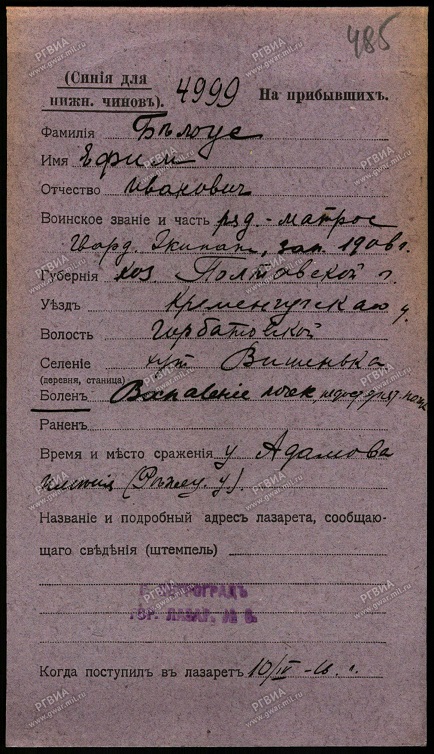 485
(Синія для
нижн. чиновъ).
4999 На прибывшихъ.
Фамилія Бѣлоус
Имя Ефим
Отчество Иванович
Воинское званіе и часть ряд.-матрос
Гвард. Экипаж, зап. 1908 г.
Губернія хоз. Полтавской г.
Уѣздъ Кременчугскаго у.
Волость Горбатовской
Селеніе хут Вишенька
(деревня, станица)
Боленъ Воспаленіе почек,
Раненъ
Время и мѣсто сраженія у Адамова
имѣнія
Названіе и подробный адресъ лазарета, сообщаю-
щаго свѣдѣнія (штемпель)
ПЕТРОГРАДЪ
ГОР. ЛАЗАР. №
Когда поступилъ въ лазаретъ 10/IV-16.
РГВИА
www.gwar.mil.ru